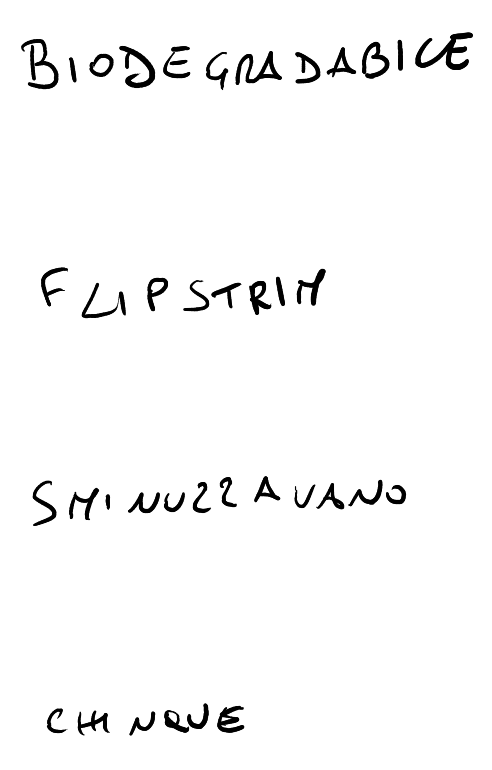 BIODEGRADABILE
FLIPSTRIM
SMINUZZAVANO
CHINQUE